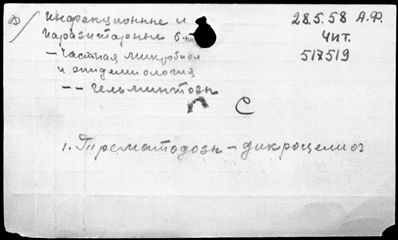 Инфекционные и
паразитарные б-ни
– Частная микробиол
и эпидемиология
– – Гельминтозы
С
1. Трематодозы – дикроцелиоз
28.5.58 А.Ф.
Чит.
517519